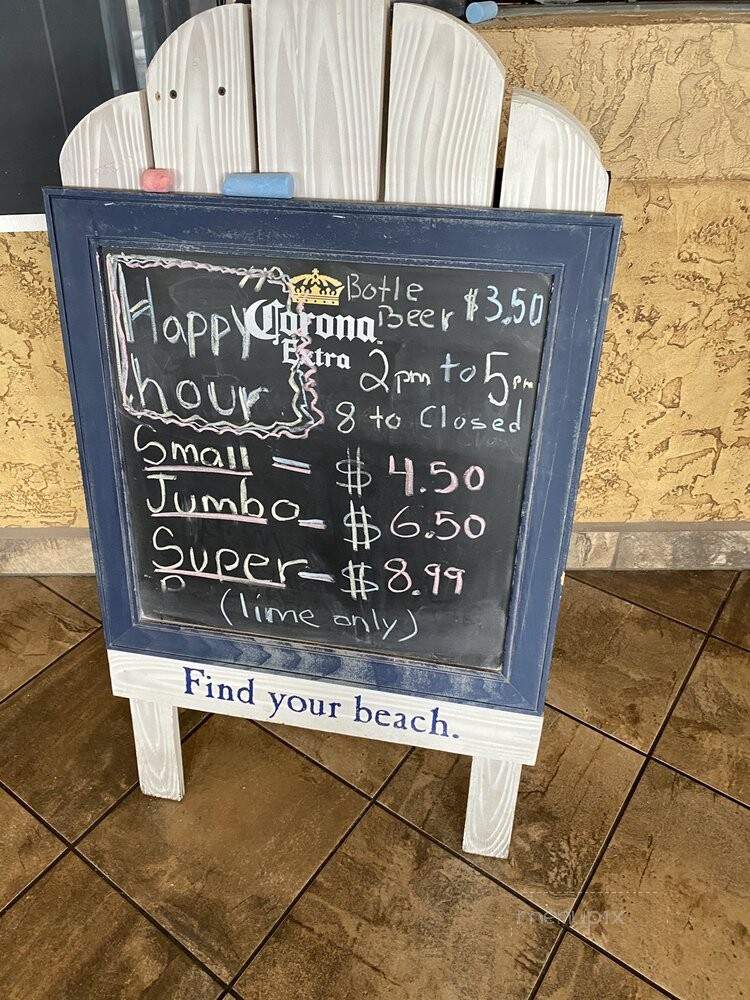 Happy
hour
Corona
Extra
Botle
Beer $3.50
2pm to 5pm
8 to Closed
Small = $4.50
Jumbo = $6.50
Super - $8.99
(lime only)
Find your beach.
menupix